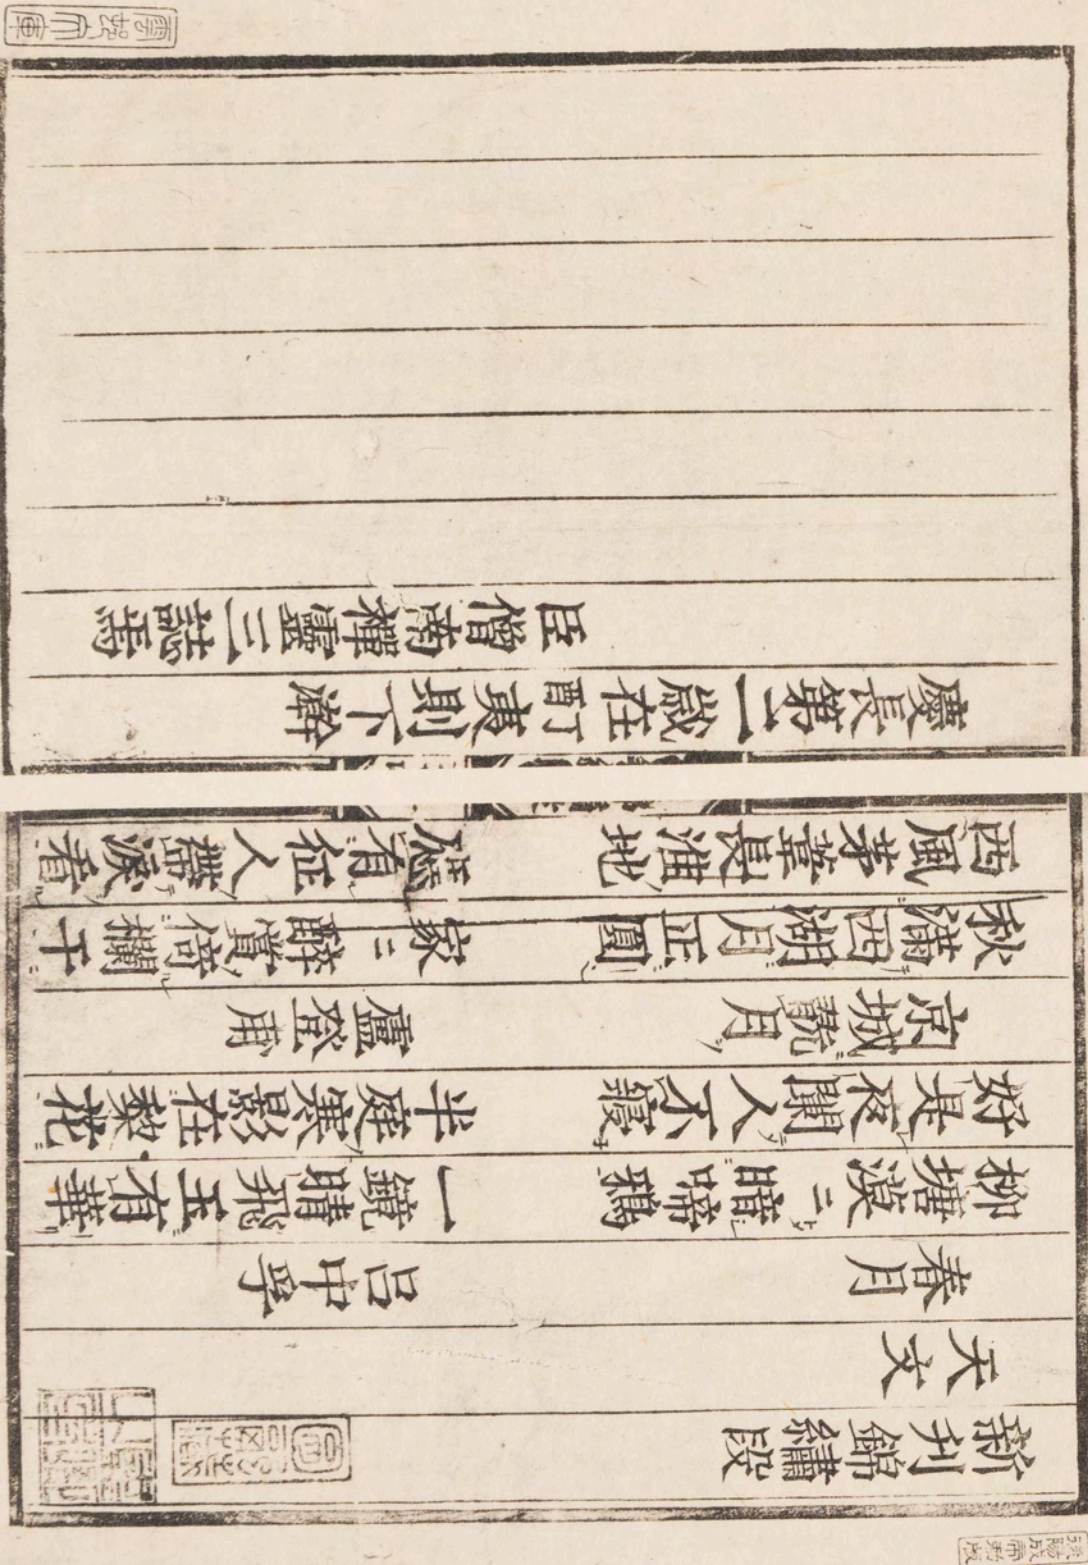 新刋錦繡段
天文
春月　呂中孚
柳塘漠〻暗啼鴉　一鏡晴飛玉有華
好是夜闌人不寢　半庭寒影在棃花
京城翫月　盧登甫
秋滿西湖月正圓　家〻醉賞倚欄干
西風茅葦長淮地　應有征人帶淚看
慶長第二歲在丁酉夷則下澣
臣僧南禪靈三誌焉
雲邨文庫